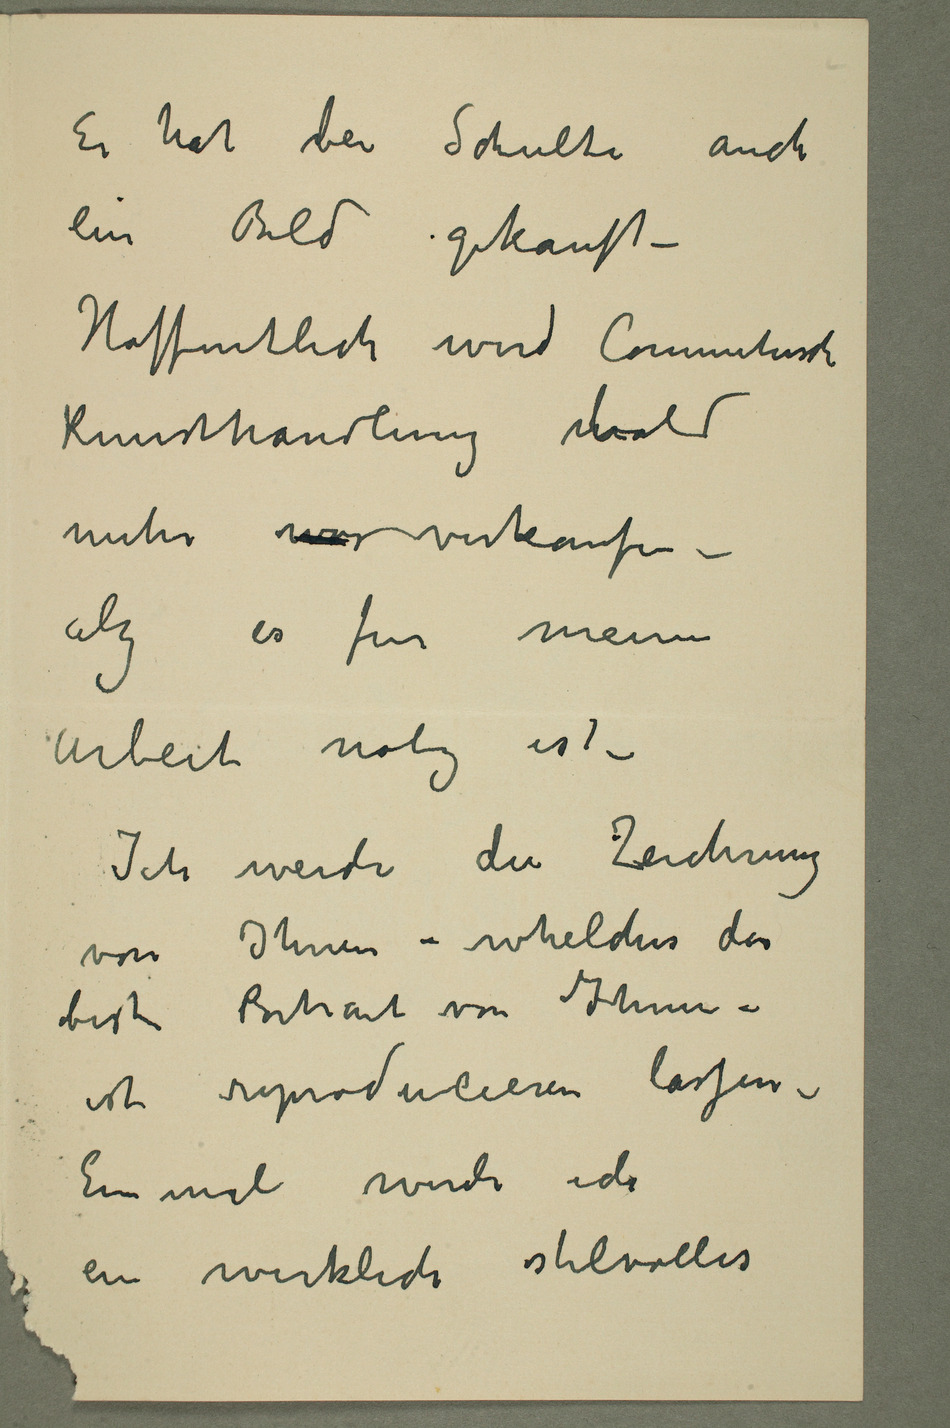 Er hat bei Schulte auch
ein Bild gekauft –
Hoffentlich wird Commetersche
Kunsthandlung bald
mehr was verkaufen –
alz es für meine
Arbeit nötig ist –
Ich werde die Zeichnung
von Ihnen – whelches das
beste Portrait von Ihnen –
ist reproducieren lassen –
Einmal werde ich
ein wirklich stilvolles